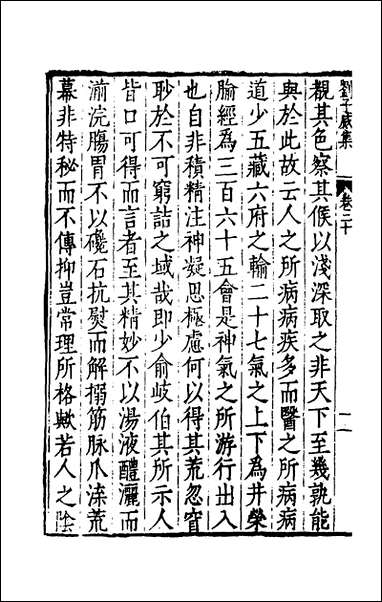 劉子威集 卷二十 二
觀其色察其候以淺深取之非天下至幾孰能
與於此故云人之所病病疾多而醫之所病病
道少五藏六府之輸二十七氣之上下為井滎
腧經為三百六十五會是神氣之所游行出入
也自非積精注神凝思極慮何以得其荒忽窅
眇於不可窮詰之域哉即少俞岐伯其所示人
皆口可得而言者至其精妙不以湯液醴灑而
湔浣腸胃不以鑱石抗熨而解搦筋脉爪湪荒
幕非特秘而不傳抑豈常理所格歟若人之陰